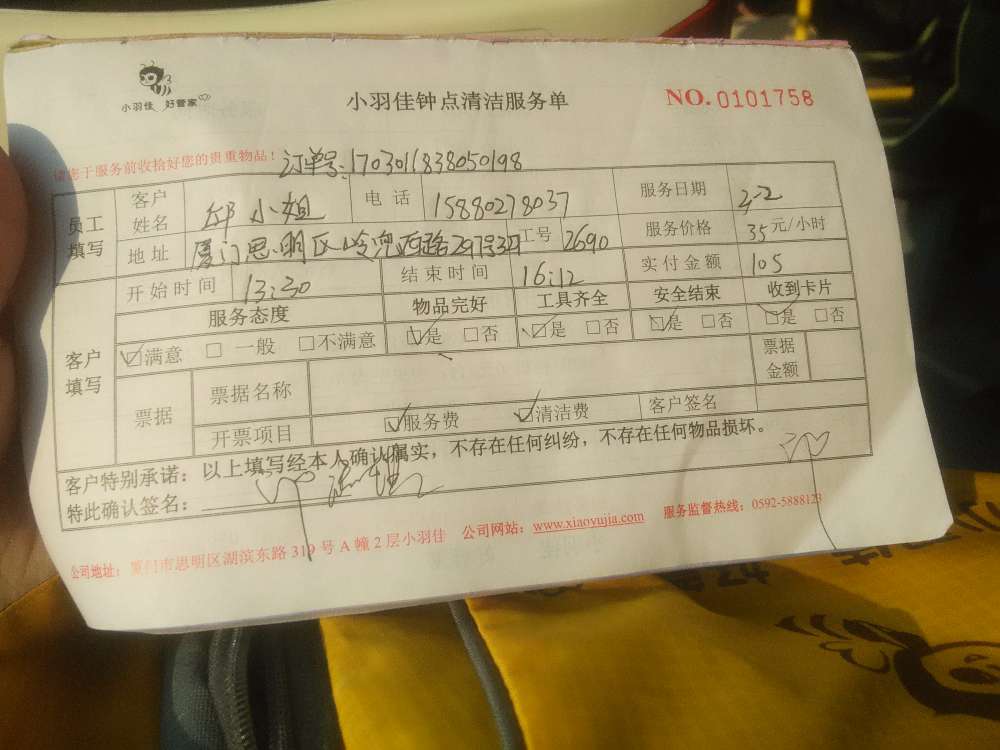 小羽佳 好管家
小羽佳钟点清洁服务单
NO. 0101758
请您于服务前收拾好您的贵重物品!
订单号:1703011838050198
员工填写
客户姓名 邱小姐 电话 15880278037 服务日期 3-2
地址 厦门思明区岭兜西路297号 工号 2690 服务价格 35元/小时
开始时间 13:30 结束时间 16:12 实付金额 105
客户填写
服务态度 物品完好 工具齐全 安全结束 收到卡片
☑满意 □一般 □不满意 ☑是 □否 ☑是 □否 ☑是 □否 ☑是 □否
票据 票据名称 票据金额
开票项目 ☑服务费 ☑清洁费 客户签名
客户特别承诺:以上填写经本人确认属实,不存在任何纠纷,不存在任何物品损坏。
特此确认签名:
公司地址:厦门市思明区湖滨东路319号A幢2层小羽佳 公司网站:www.xiaoyujia.com 服务监督热线:0592-5888123